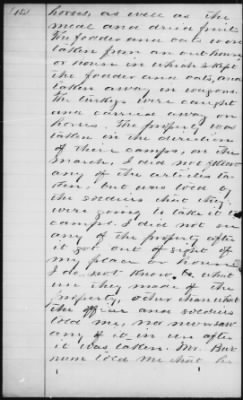 horses, as well as the
meal and dried fruit.
The fodder and oats were
taken from an out house
or house in which I kept
the fodder and oats, and
taken away in wagons.
The turkeys were caught
and carried away on
horses. The property was
taken in the direction
of their camps, on the
march, I did not follow
any of the articles ta
ken; but was told by
the soldiers that they
were going to take it to
camps. I did not see
any of the property after
it got out of sight of
my place or house.
I do not know what
use they made of the
property, other than what
the officers and soldiers
told me, nor saw
any of it in use after
it was taken. Mr. Bur
num told me that he